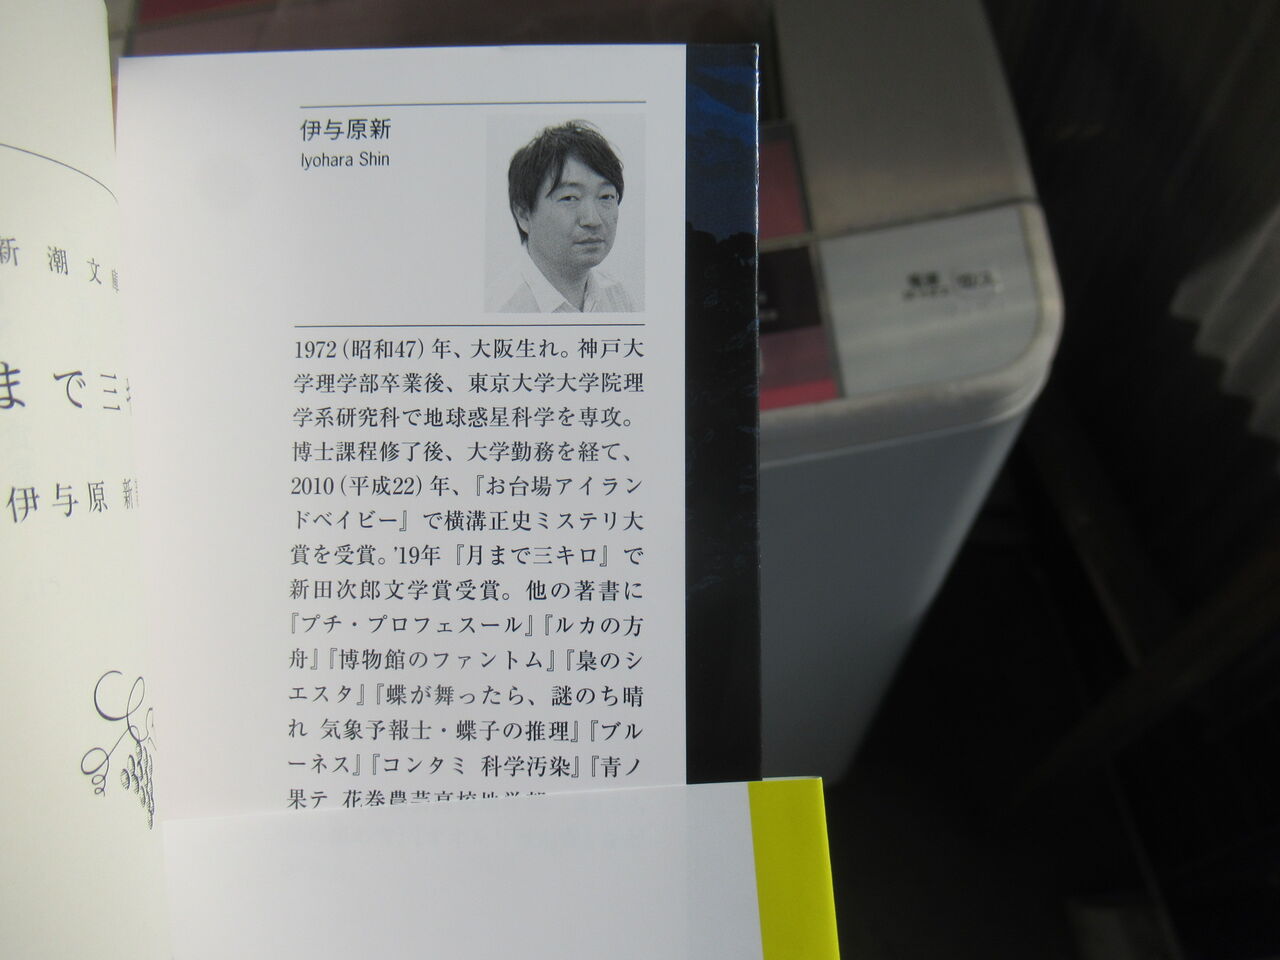 新潮文庫
まで三キ
伊与原 新
伊与原新
Iyohara Shin
1972（昭和47）年、大阪生れ。神戸大
学理学部卒業後、東京大学大学院理
学系研究科で地球惑星科学を専攻。
博士課程修了後、大学勤務を経て、
2010（平成22）年、『お台場アイラン
ドベイビー』で横溝正史ミステリ大
賞を受賞。’19年『月まで三キロ』で
新田次郎文学賞受賞。他の著書に
『プチ・プロフェスール』『ルカの方
舟』『博物館のファントム』『梟のシ
エスタ』『蝶が舞ったら、謎のち晴
れ 気象予報士・蝶子の推理』『ブル
ーネス』『コンタミ 科学汚染』『青ノ
果テ 花巻農芸高校地学部